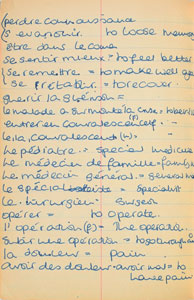 perdre connaissance
s'evanouir = to loose
être dans le coma
se sentir mieux = to feel better
se remettre = to make well again
se = to recover
guérir la guérison =
le malade a surmonté la crise =
entrer en convalescence =
le, la, convalescent (e) =
le pédiatre = special
le médecin de famille = family
le médecin général = general
le spécialiste = Specialist
le chirurgien = Surgeon
opérer = to operate
l'opération (f) = the operation
Subir une opération = to
la douleur = pain
avoir des douleur - avoir mal = to
have pain